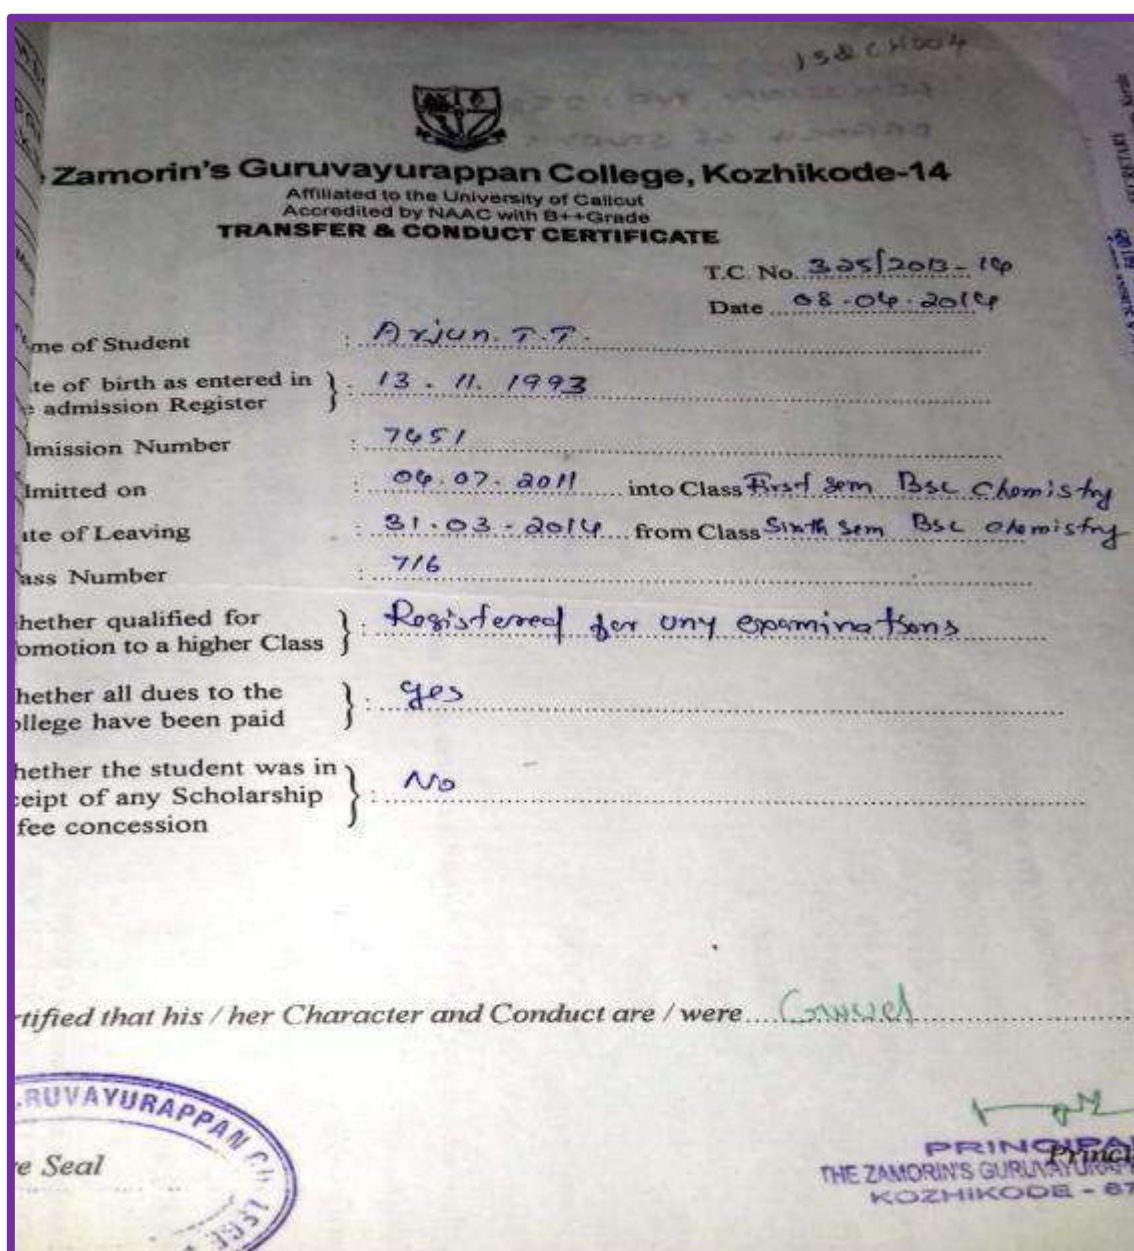 15&CH004
Zamorin's Guruvayurappan College, Kozhikode-14
Affiliated to the University of Calicut
Accredited by NAAC with B++Grade
TRANSFER & CONDUCT CERTIFICATE
T.C. No. 325/2013-14
Date 08.04.2014
me of Student : Arjun.T.T.
te of birth as entered in
admission Register } : 13.11.1993
lmission Number : 7451
lmitted on : 04.07.2011 into Class First Sem Bsc Chemistry
te of Leaving : 31.03.2014 from Class Sixth Sem Bsc Chemistry
ass Number : 716
hether qualified for
omotion to a higher Class } : Registered for uny examinations
hether all dues to the
ollege have been paid } : yes
hether the student was in
ceipt of any Scholarship
fee concession } : No
rtified that his / her Character and Conduct are / were Good
RUVAYURAPPAN
e Seal
PRINCIPA
Princi
THE ZAMORIN'S GURUVAYURAPP
KOZHIKODE - 67